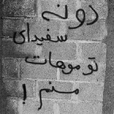 دونه
سفیدای
تو موهات
منم !